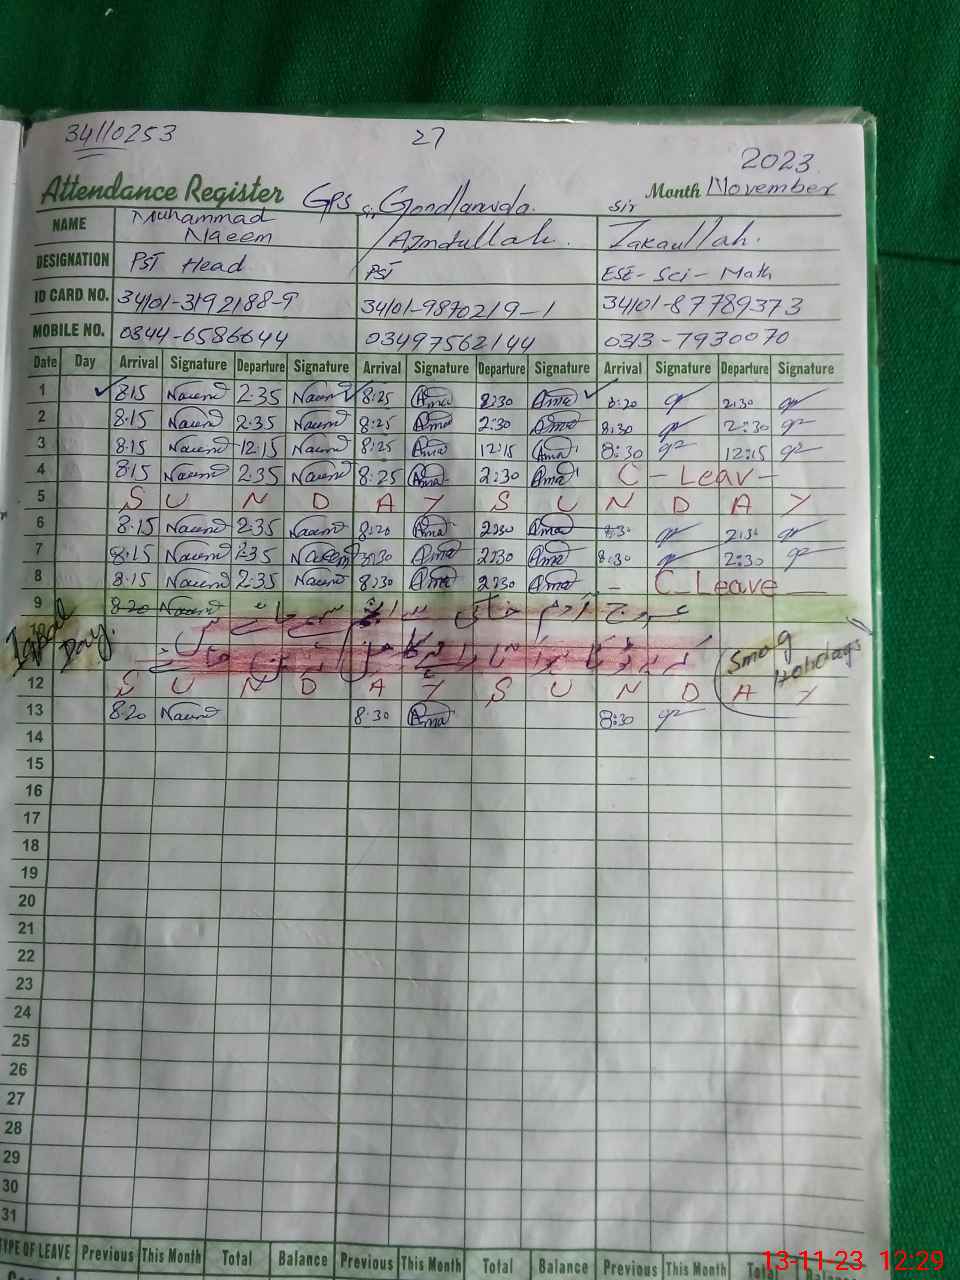 34110253 27
2023
Attendance Register GPS Gondlanwda. Month November
NAME Muhammad Naeem Amdullah. Sir Zakaullah.
DESIGNATION PST Head PST ESE-Sci-Math
ID CARD NO. 34101-3192188-9 34101-9870219-1 34101-87789373
MOBILE NO. 0344-6586644 03497562144 0313-7930070
Date Day Arrival Signature Departure Signature Arrival Signature Departure Signature Arrival Signature Departure Signature
1 8:15 Naeem 2:35 Naeem 8:25 Ama 2:30 Ama 8:20 2:30
2 8:15 Naeem 2:35 Naeem 8:25 Ama 2:30 Ama 8:30 2:30
3 8:15 Naeem 12:15 Naeem 8:25 Ama 12:15 Ama 8:30 12:15
4 8:15 Naeem 2:35 Naeem 8:25 Ama 2:30 Ama C-Leav-
5 S U N D A Y S U N D A Y
6 8:15 Naeem 2:35 Naeem 8:20 Ama 2:30 Ama 8:30 2:30
7 8:15 Naeem 2:35 Naeem 8:30 Ama 2:30 Ama 8:30 2:30
8 8:15 Naeem 2:35 Naeem 8:30 Ama 2:30 Ama - C-Leave
9 8:20 Naeem عروج آدم خاکی سے
10
Iqbal Day.
Smog Holidays
12 S U N D A Y S U N D A Y
13 8:20 Naeem 8:30 Ama 8:30
14
15
16
17
18
19
20
21
22
23
24
25
26
27
28
29
30
31
TYPE OF LEAVE Previous This Month Total Balance Previous This Month Total Balance Previous This Month Total Balance
13-11-23 12:29